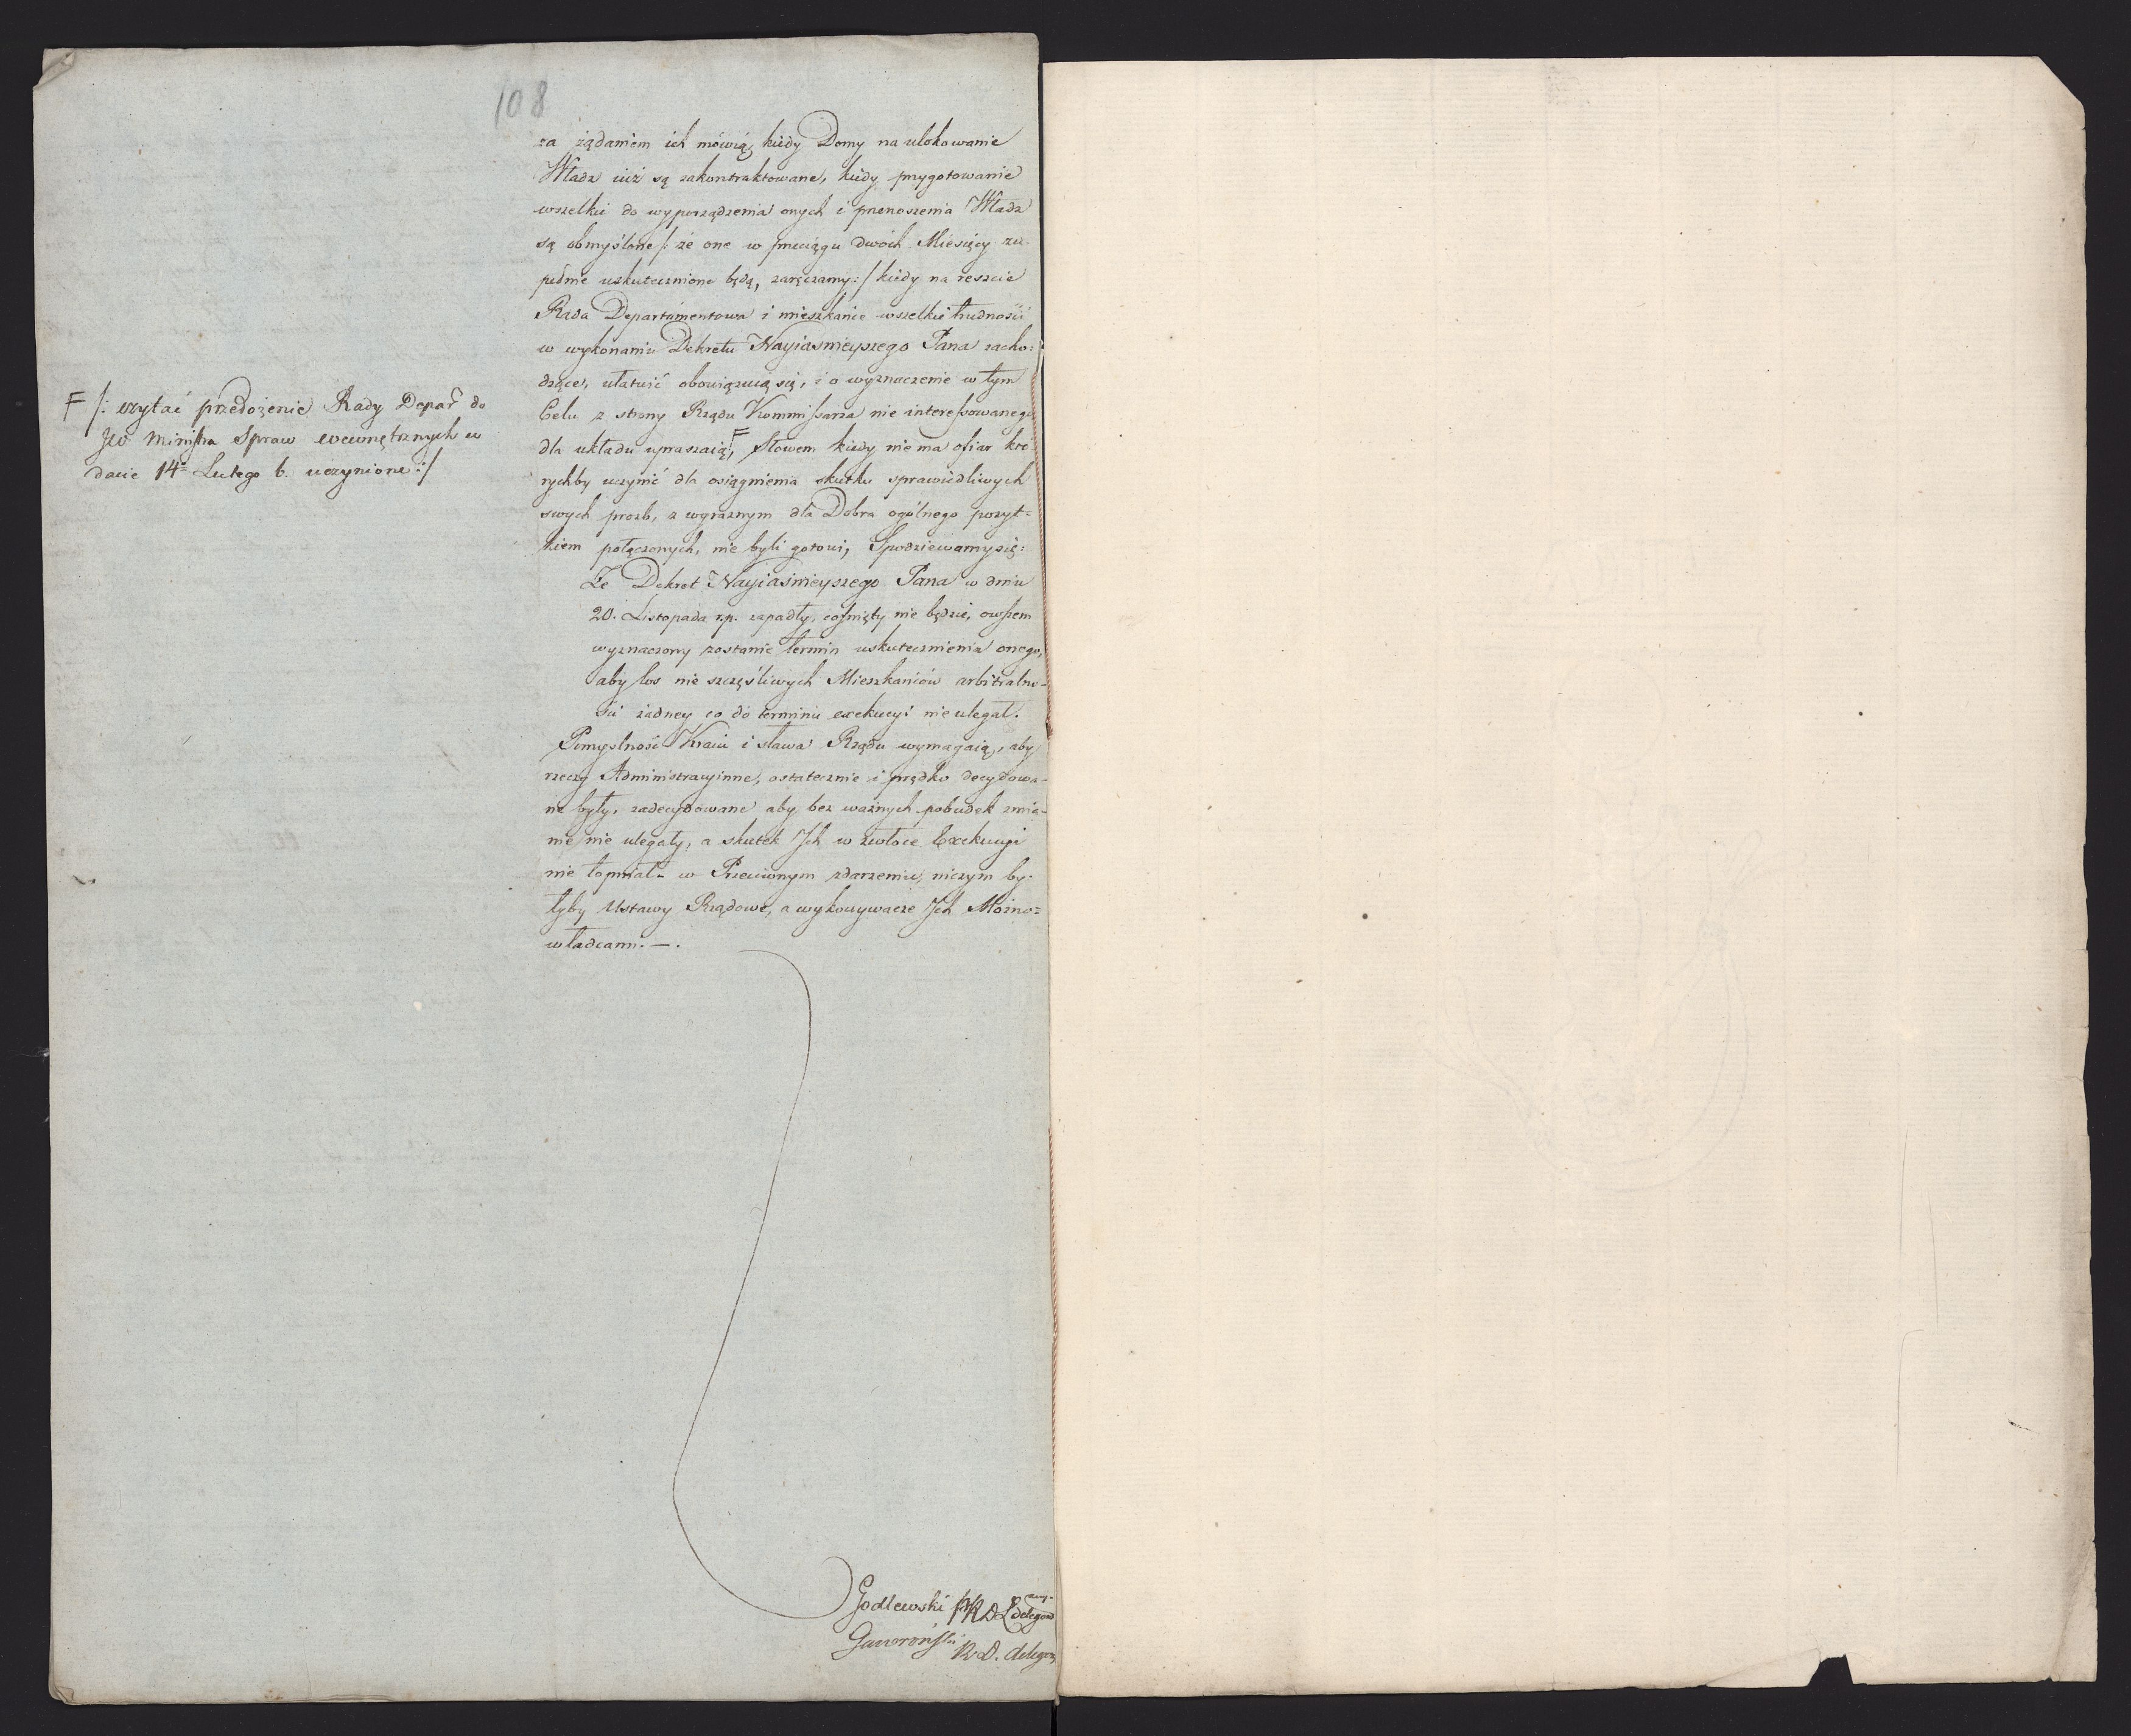 108
za żądaniem ich mówią, kiedy Domy na ulokowanie
Władz iuż są zakontraktowane, kiedy przygotowanie
wszelkie do wyporządzenia onych i przenoszenia Władz
są obmyślone /: że one w przeciągu dwóch Miesięcy zu-
pełnie uskutecznione będą, zaręczamy :/ kiedy na reszcie
Rada Departamentowa i mieszkańce wszelkie trudności
w wykonaniu Dekretu Nayiasnieyszego Pana zacho=
dzące, ułatwić obowiązuią się, i o wyznaczenie w tym
Celu z strony Rządu Kommissarza nie interessowanego
dla układu upraszaią, F Słowem kiedy nie ma ofiar któ
rychby uczynić dla osiągnienia skutku sprawiedliwych
swych prozb, z wyraznym dla Dobra ogólnego pozyt=
kiem połączonych, nie byli gotowi, Spodziewamy się:
Że Dekret Nayiaśnieyszego Pana w dniu
20. Listopada r.p. zapadły, cofnięty nie będzie, owszem
wyznaczony zostanie termin uskutecznienia onego,
aby los nie szczęśliwych Mieszkańców arbitralno-
ści żadney co do terminu exekucyi nie ulegał.
Pomyslność Kraiu i sława Rządu wymagaią, aby
rzeczy Administracyinne, ostatecznie i prędko decydowa-
ne były, zadecydowane aby bez ważnych pobudek zmia-
nie nie ulegały, a skutek Ich w zwłoce Exekucyi
nie topniał. w Przeciwnym zdarzeniu, niczym by-
łyby Ustawy Rządowe, a wykonywacze Ich Możno=
władcami. —.
F /: czytać przedłożenie Rady Depar. do
JW Ministra Spraw wewnętrznych w
dacie 14 Lutego b. uczynione :/
Godlewski
Gawroński R.D. delegow